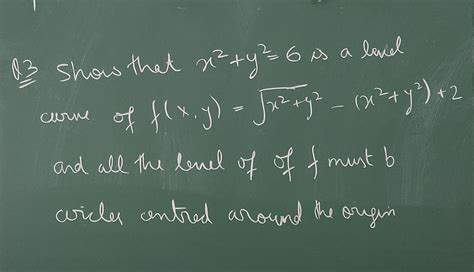 Q3 Show that x²+y²=6 is a level
curve of f(x,y) = √x²+y² - (x²+y²)+2
and all the level of of f must b
circles centred around the origin